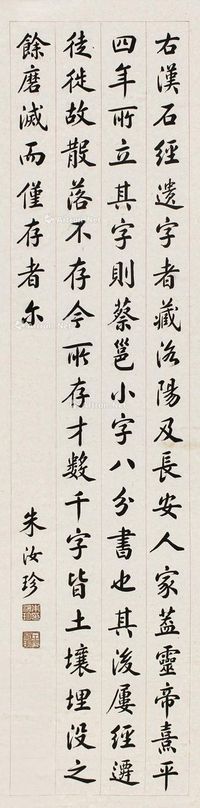 右漢石經遺字者藏洛陽及長安人家蓋靈帝熹平
四年所立其字則蔡邕小字八分書也其後屢經遷
徒徙故散落不存今所存才數千字皆土壤埋没之
餘磨滅而僅存者尔
朱汝珍